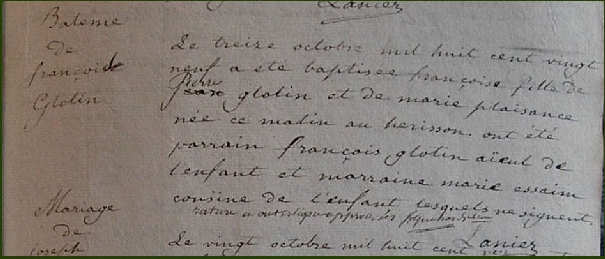 Lanier
Bateme
de
françoise
Glotin
Le treize octobre mil huit cent vingt
neuf a été baptisée françoise fille de
Pierre
jean glotin et de marie plaisance
née ce matin au herisson. ont été
parrain françois glotin aïeul de
l'enfant et marraine marie essaim
cousine de l'enfant lesquels ne signent.
rature
Lanier
Mariage
de
joseph
Le vingt octobre mil huit cent